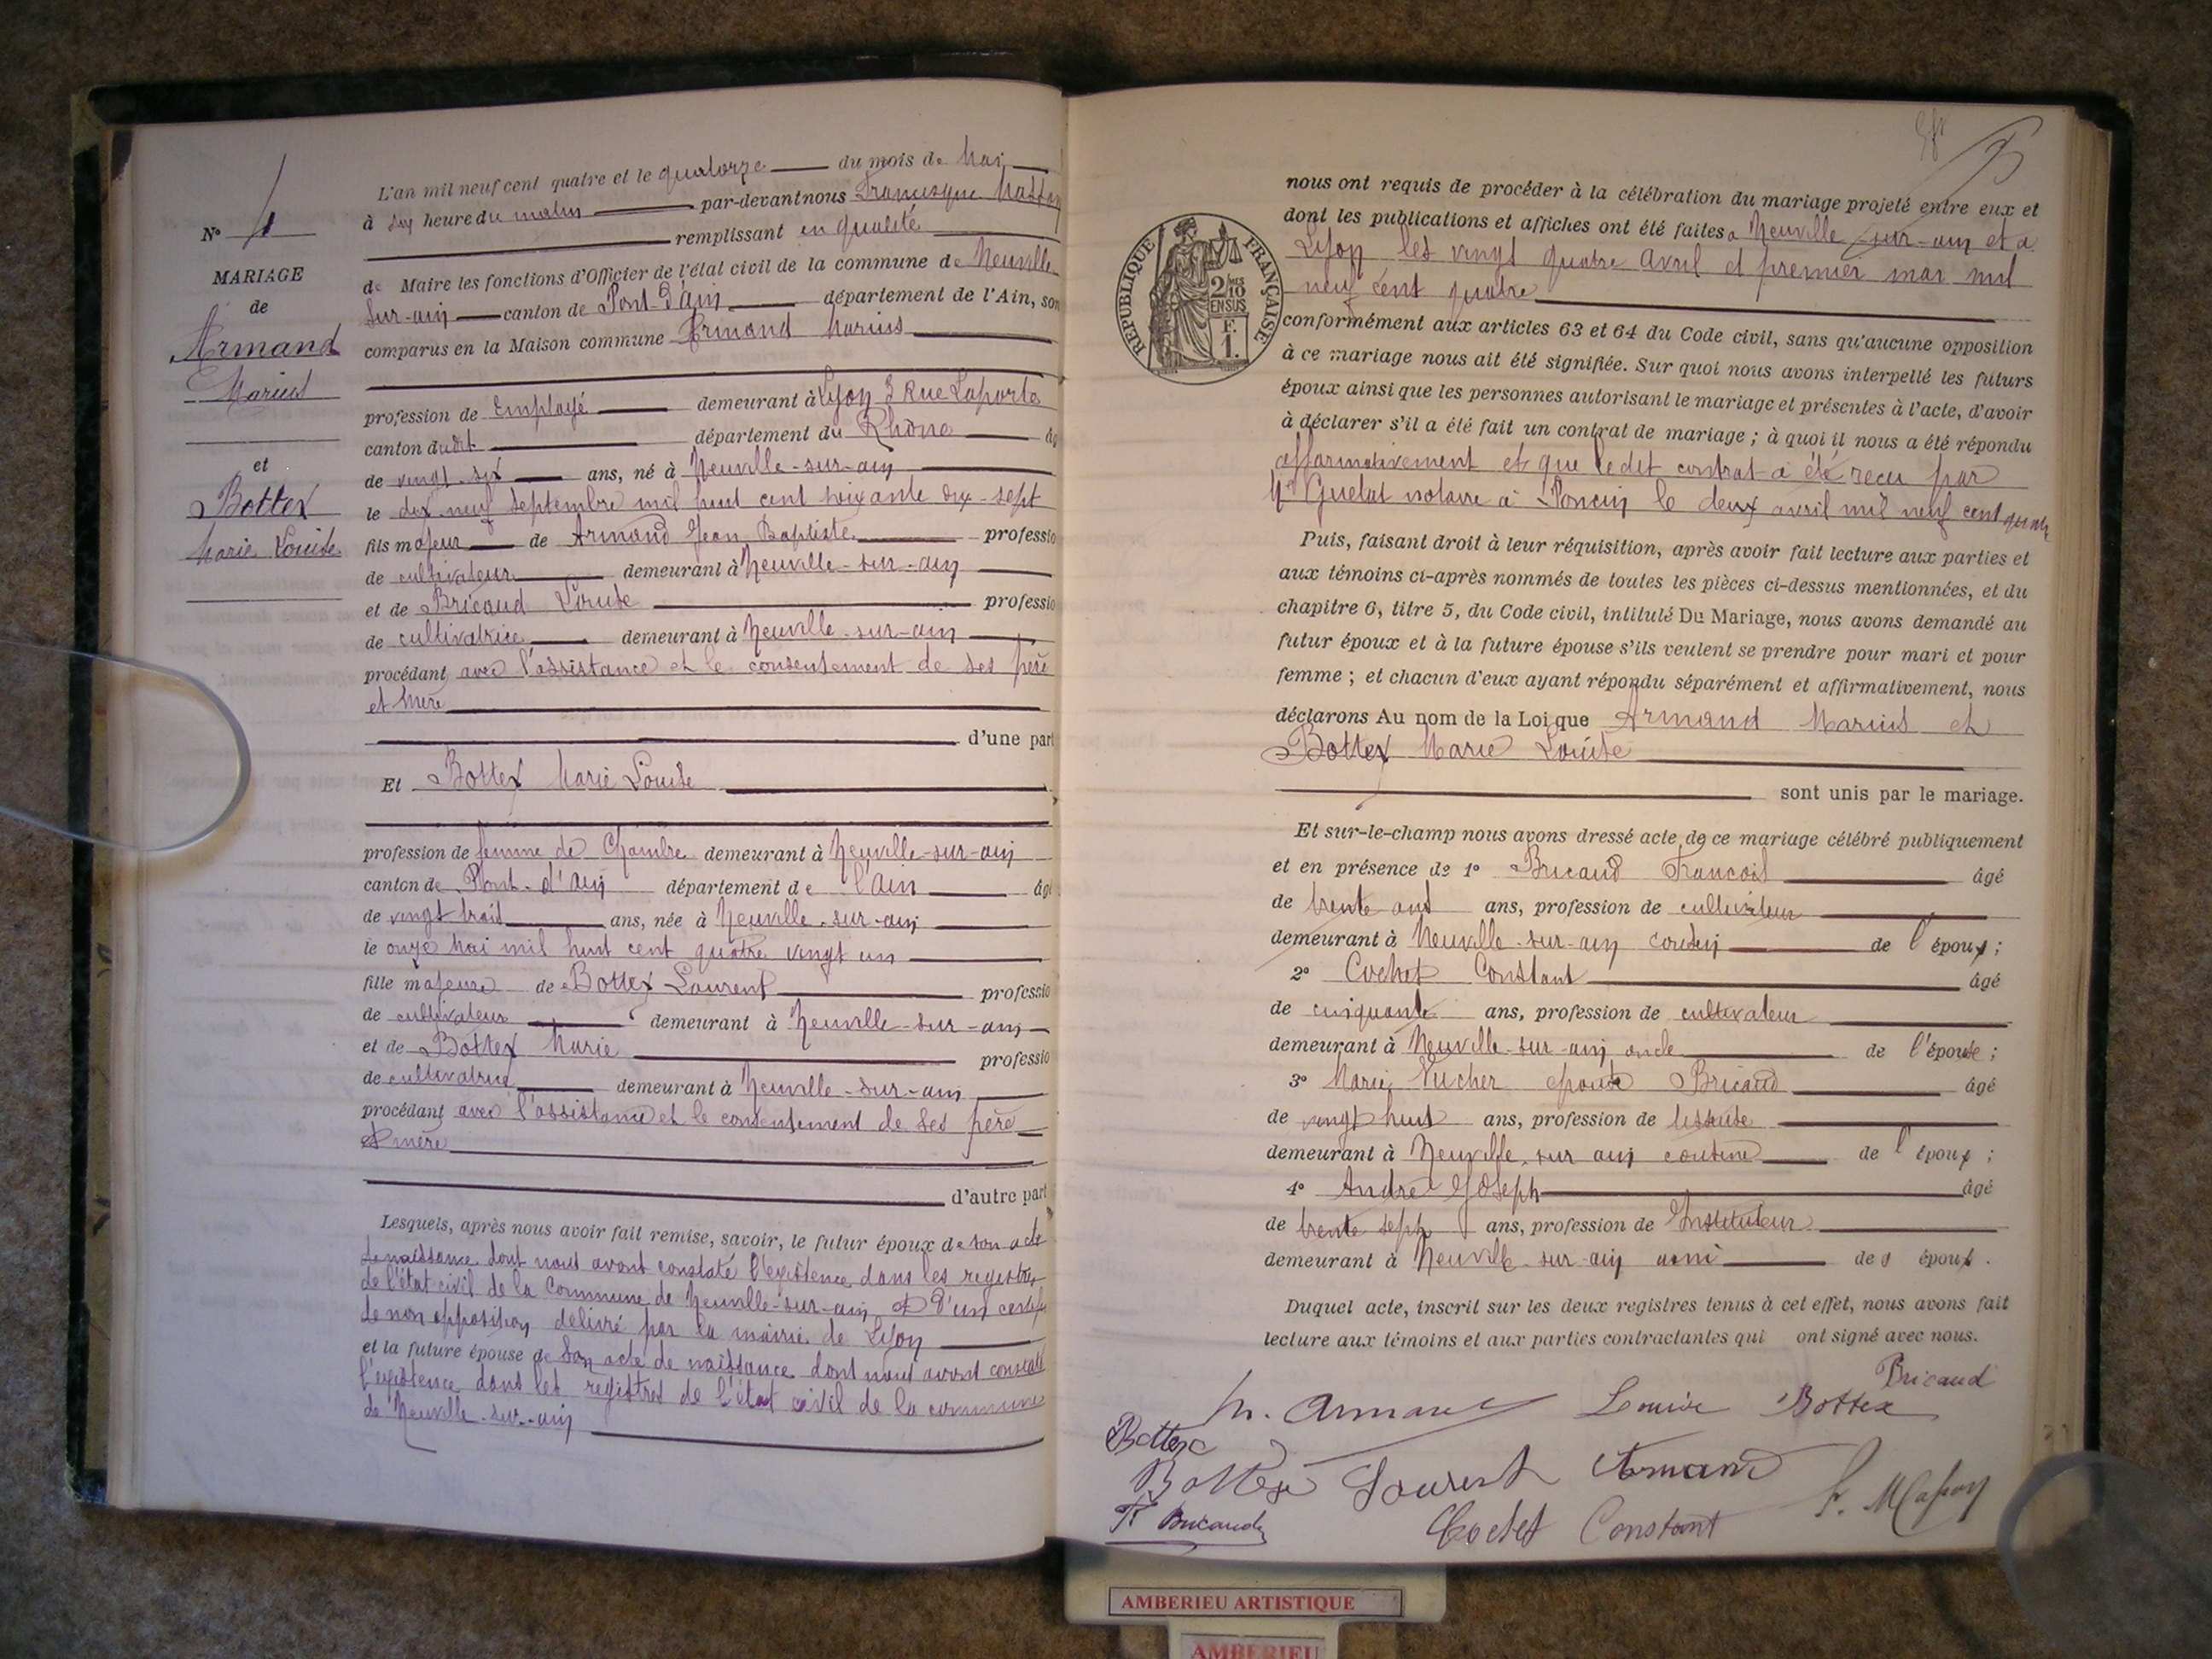 N° 4
MARIAGE
de
Armand
Marius
et
Bottex
Marie Louise
L'an mil neuf cent quatre et le quatorze du mois de Mai
à six heure du matin par-devant nous Francisque
remplissant en qualité
de Maire les fonctions d'Officier de l'état civil de la commune de Neuville
sur-ain canton de Pont-d'ain département de l'Ain, son
comparus en la Maison commune Armand Marius
profession de Employé demeurant à Lyon 3 Rue Laporte
canton dudit département du Rhône âg
de vingt-six ans, né à Neuville-sur-ain
le dix neuf septembre mil huit cent soixante dix-sept
fils majeur de Armand Jean Baptiste professio
de cultivateur demeurant à Neuville-sur-ain
et de Bricaud Louise professio
de cultivatrice demeurant à Neuville-sur-ain
procédant avec l'assistance et le consentement de ses père
et mère
d'une part
Et Bottex Marie Louise
profession de femme de Chambre demeurant à Neuville-sur-ain
canton de Pont-d'ain département de l'ain âgé
de vingt trois ans, née à Neuville-sur-ain
le onze Mai mil huit cent quatre vingt un
fille majeure de Bottex Laurent professio
de cultivateur demeurant à Neuville-sur-ain
et de Bottex Marie professio
de cultivatrice demeurant à Neuville-sur-ain
procédant avec l'assistance et le consentement de ses père
et mère
d'autre part
Lesquels, après nous avoir fait remise, savoir, le futur époux de son acte
de naissance dont nous avons constaté l'existence dans les registres
de l'état civil de la Commune de Neuville-sur-ain et d'un certif
de non opposition délivré par la mairie de Lyon
et la future épouse de son acte de naissance dont nous avons constaté
l'existence dans les registres de l'état civil de la commune
de Neuville-sur-ain
nous ont requis de procéder à la célébration du mariage projeté entre eux et
dont les publications et affiches ont été faites à Neuville-sur-ain et à
Lyon les vingt quatre avril et premier mai mil
neuf cent quatre
REPUBLIQUE FRANÇAISE
2/10 EN SUS
F. 1.
conformément aux articles 63 et 64 du Code civil, sans qu'aucune opposition
à ce mariage nous ait été signifiée. Sur quoi nous avons interpellé les futurs
époux ainsi que les personnes autorisant le mariage et présentes à l'acte, d'avoir
à déclarer s'il a été fait un contrat de mariage ; à quoi il nous a été répondu
affirmativement et que ledit contrat a été recu par
Me notaire à Poncin le deux avril mil neuf cent quatre
Puis, faisant droit à leur réquisition, après avoir fait lecture aux parties et
aux témoins ci-après nommés de toutes les pièces ci-dessus mentionnées, et du
chapitre 6, titre 5, du Code civil, intitulé Du Mariage, nous avons demandé au
futur époux et à la future épouse s'ils veulent se prendre pour mari et pour
femme ; et chacun d'eux ayant répondu séparément et affirmativement, nous
déclarons Au nom de la Loi que Armand Marius et
Bottex Marie Louise
sont unis par le mariage.
Et sur-le-champ nous avons dressé acte de ce mariage célébré publiquement
et en présence de 1° Bricaud Francois âgé
de trente ans ans, profession de cultivateur
demeurant à Neuville-sur-ain cousin de l'époux ;
2° Cochet Constant âgé
de cinquante ans, profession de cultivateur
demeurant à Neuville-sur-ain oncle de l'épouse ;
3° Marie épouse Bricaud âgé
de vingt huit ans, profession de
demeurant à Neuville sur ain cousine de l'époux ;
4° André Joseph âgé
de trente sept ans, profession de Instituteur
demeurant à Neuville sur-ain ami des époux.
Duquel acte, inscrit sur les deux registres tenus à cet effet, nous avons fait
lecture aux témoins et aux parties contractantes qui ont signé avec nous.
Bricaud
M. Armand Louise Bottex
Bottex
Bottex Laurent Armand
F. Bricaud Cochet Constant
AMBERIEU ARTISTIQUE
AMBERIEU